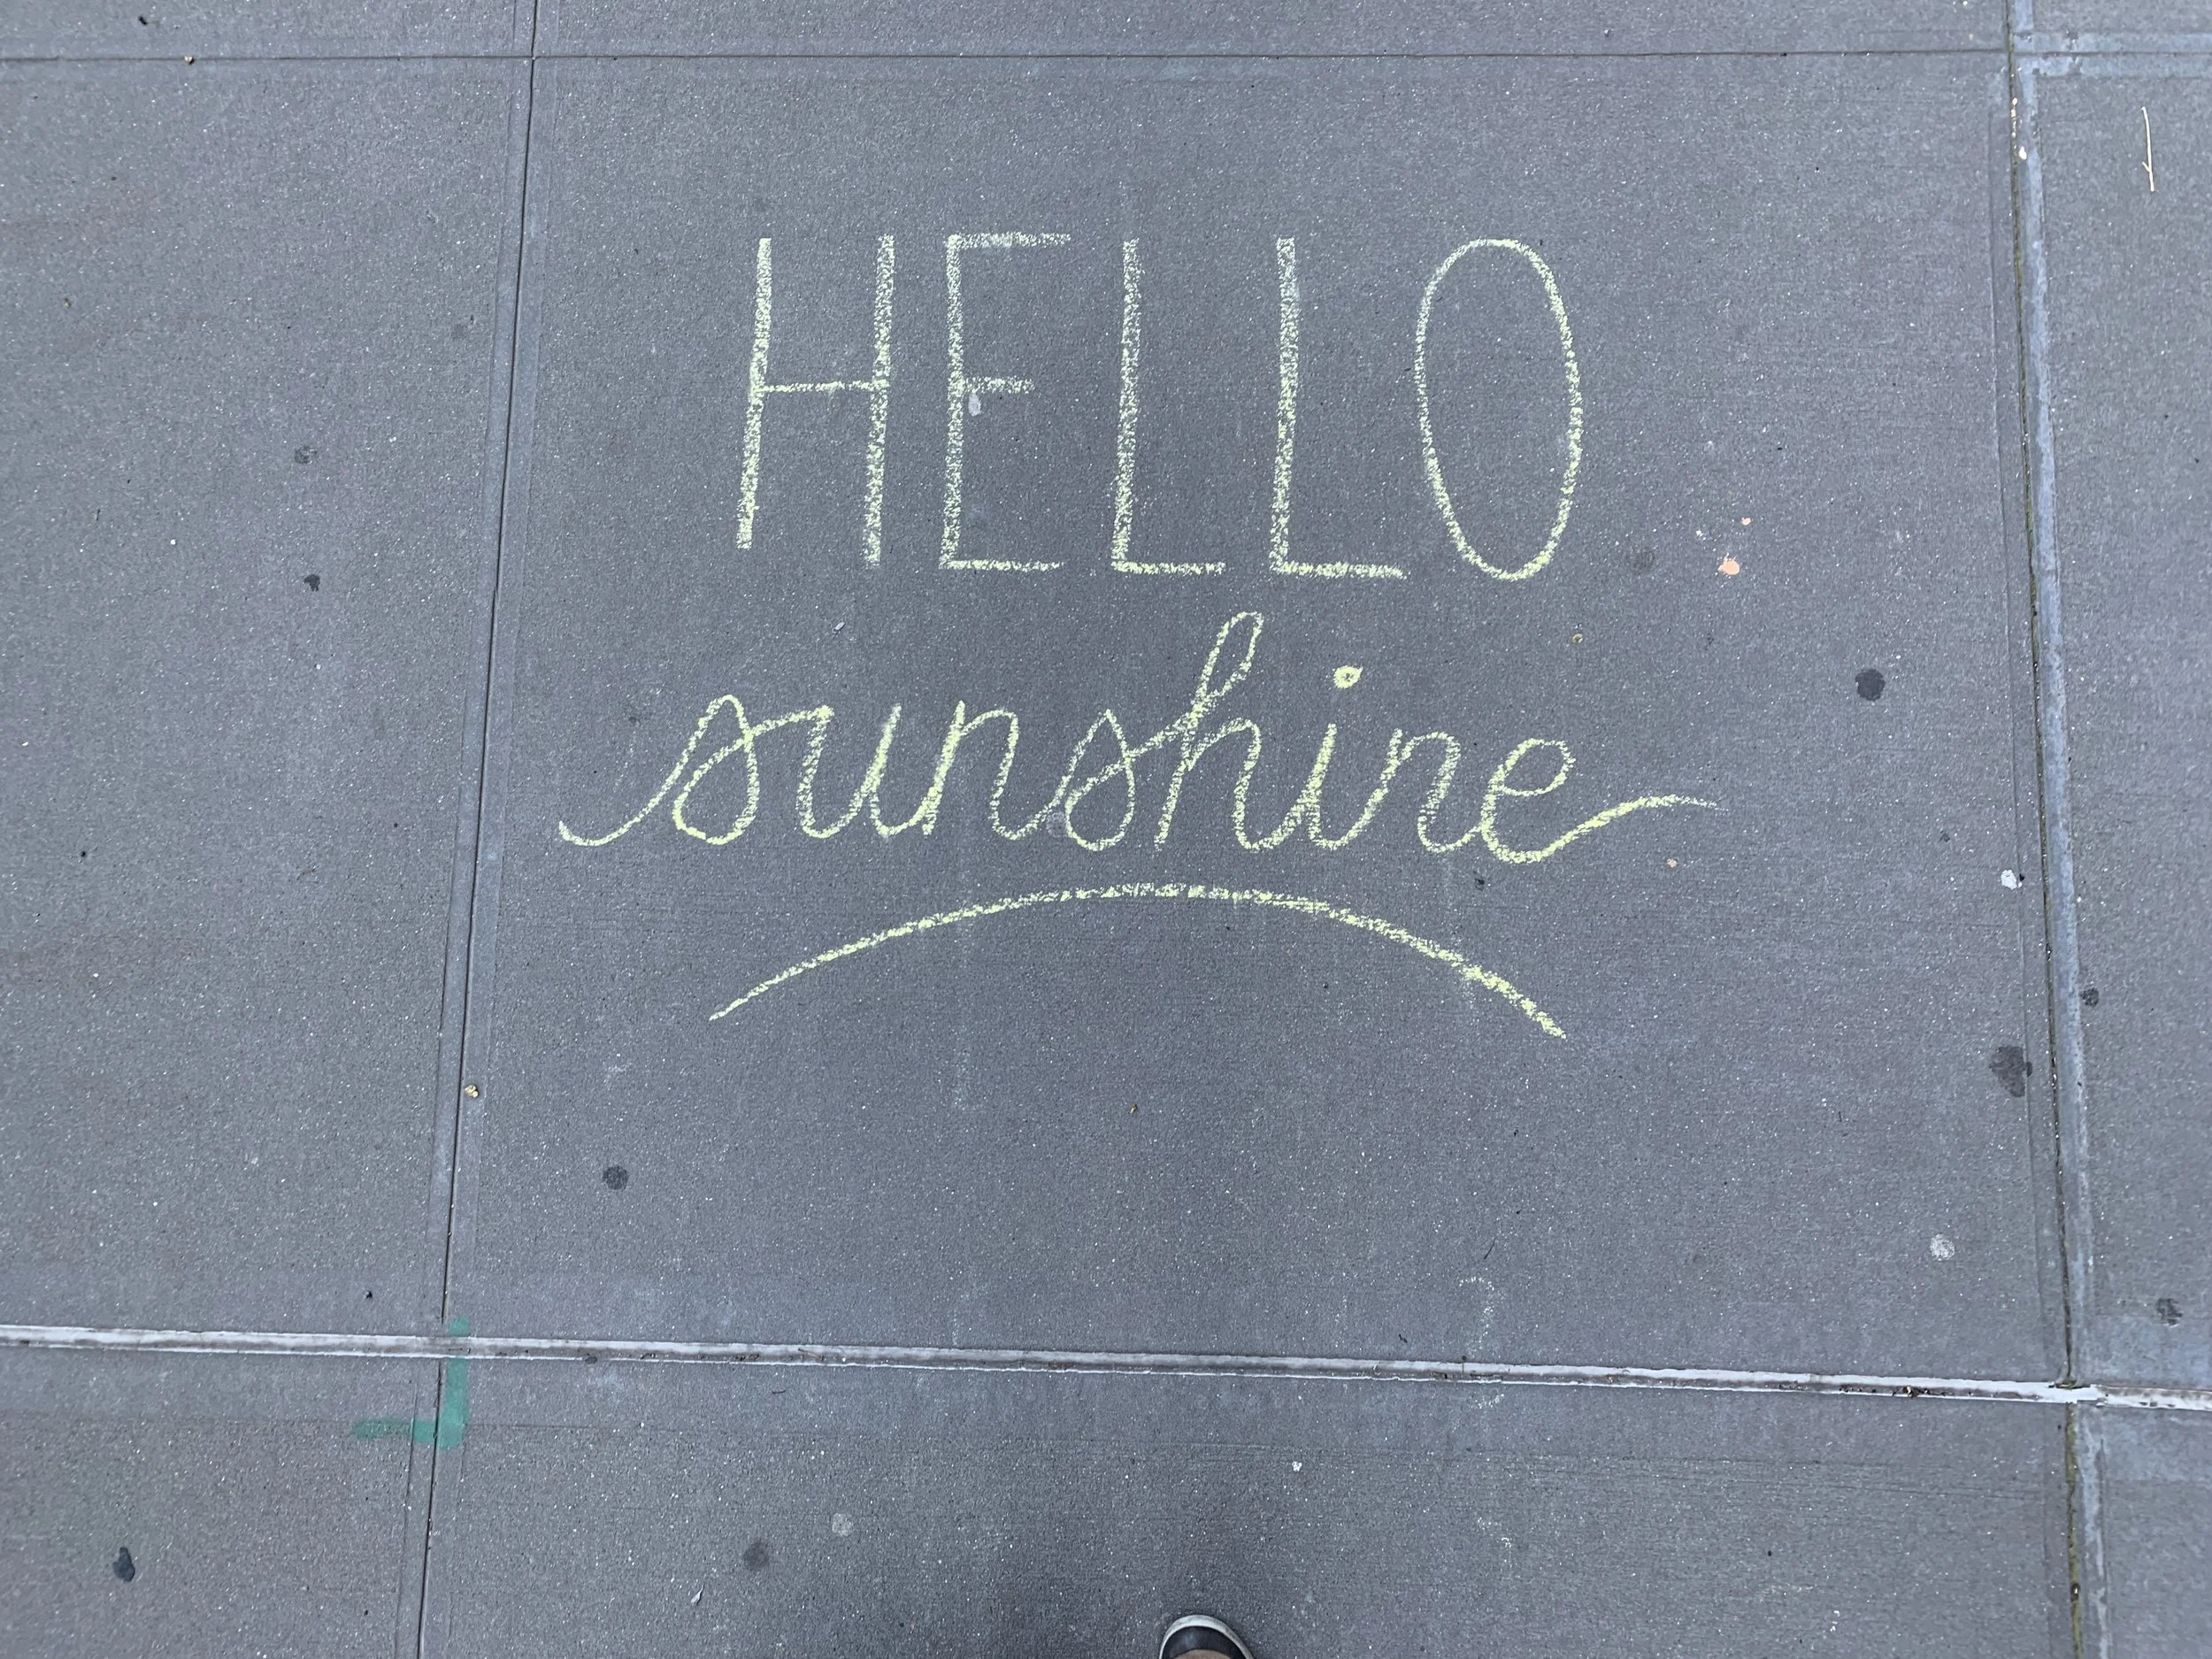 HELLO
sunshine